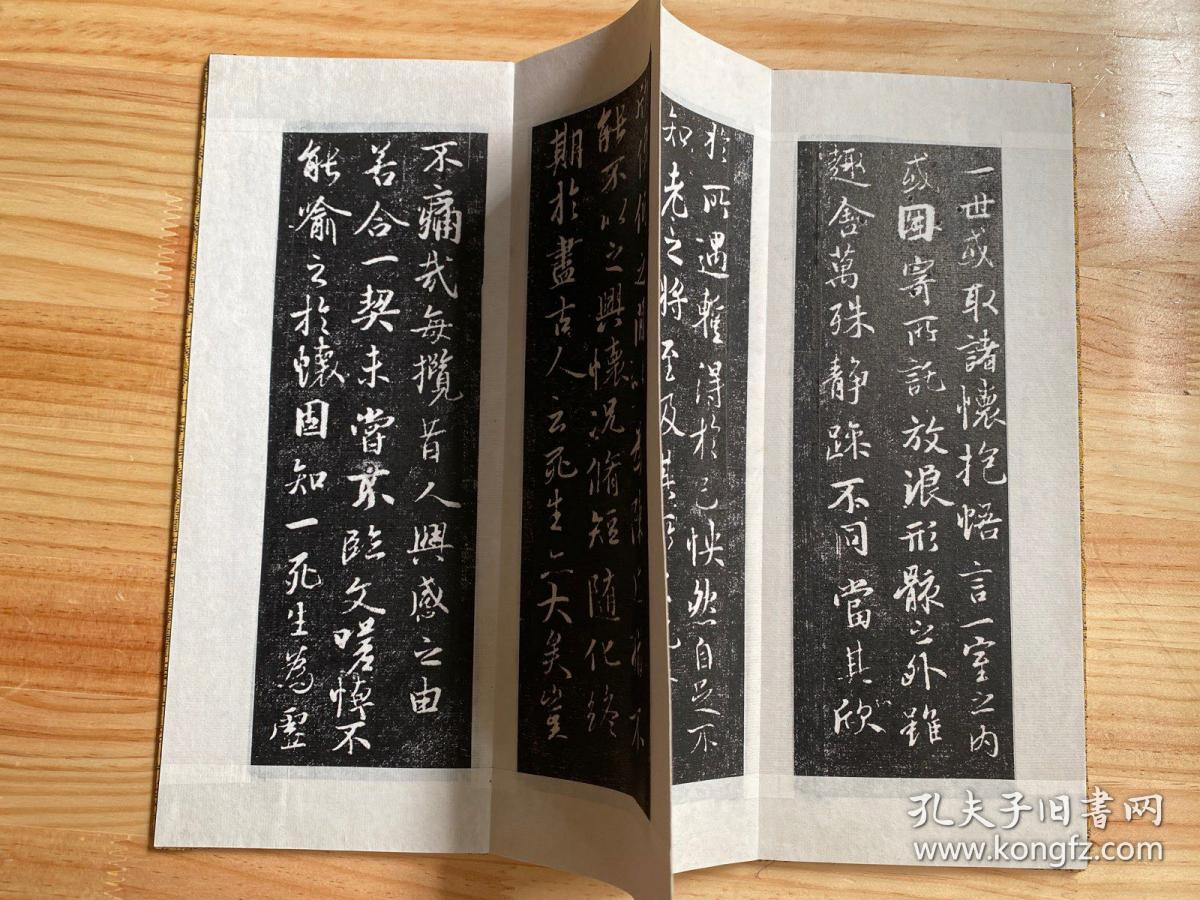 一世或取諸懷抱悟言一室之內
或因寄所託放浪形骸之外雖
趣舍萬殊靜躁不同當其欣
於所遇暫得於己怏然自足不
知老之將至及其
能不以之興懷況脩短隨化終
期於盡古人云死生亦大矣豈
不痛哉每攬昔人興感之由
若合一契未嘗不臨文嗟悼不
能喻之於懷固知一死生為虛
孔夫子旧书网
www.kongfz.com